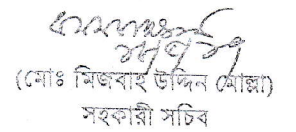 (মোঃ মিজবাহ উদ্দিন মোল্লা)
সহকারী সচিব